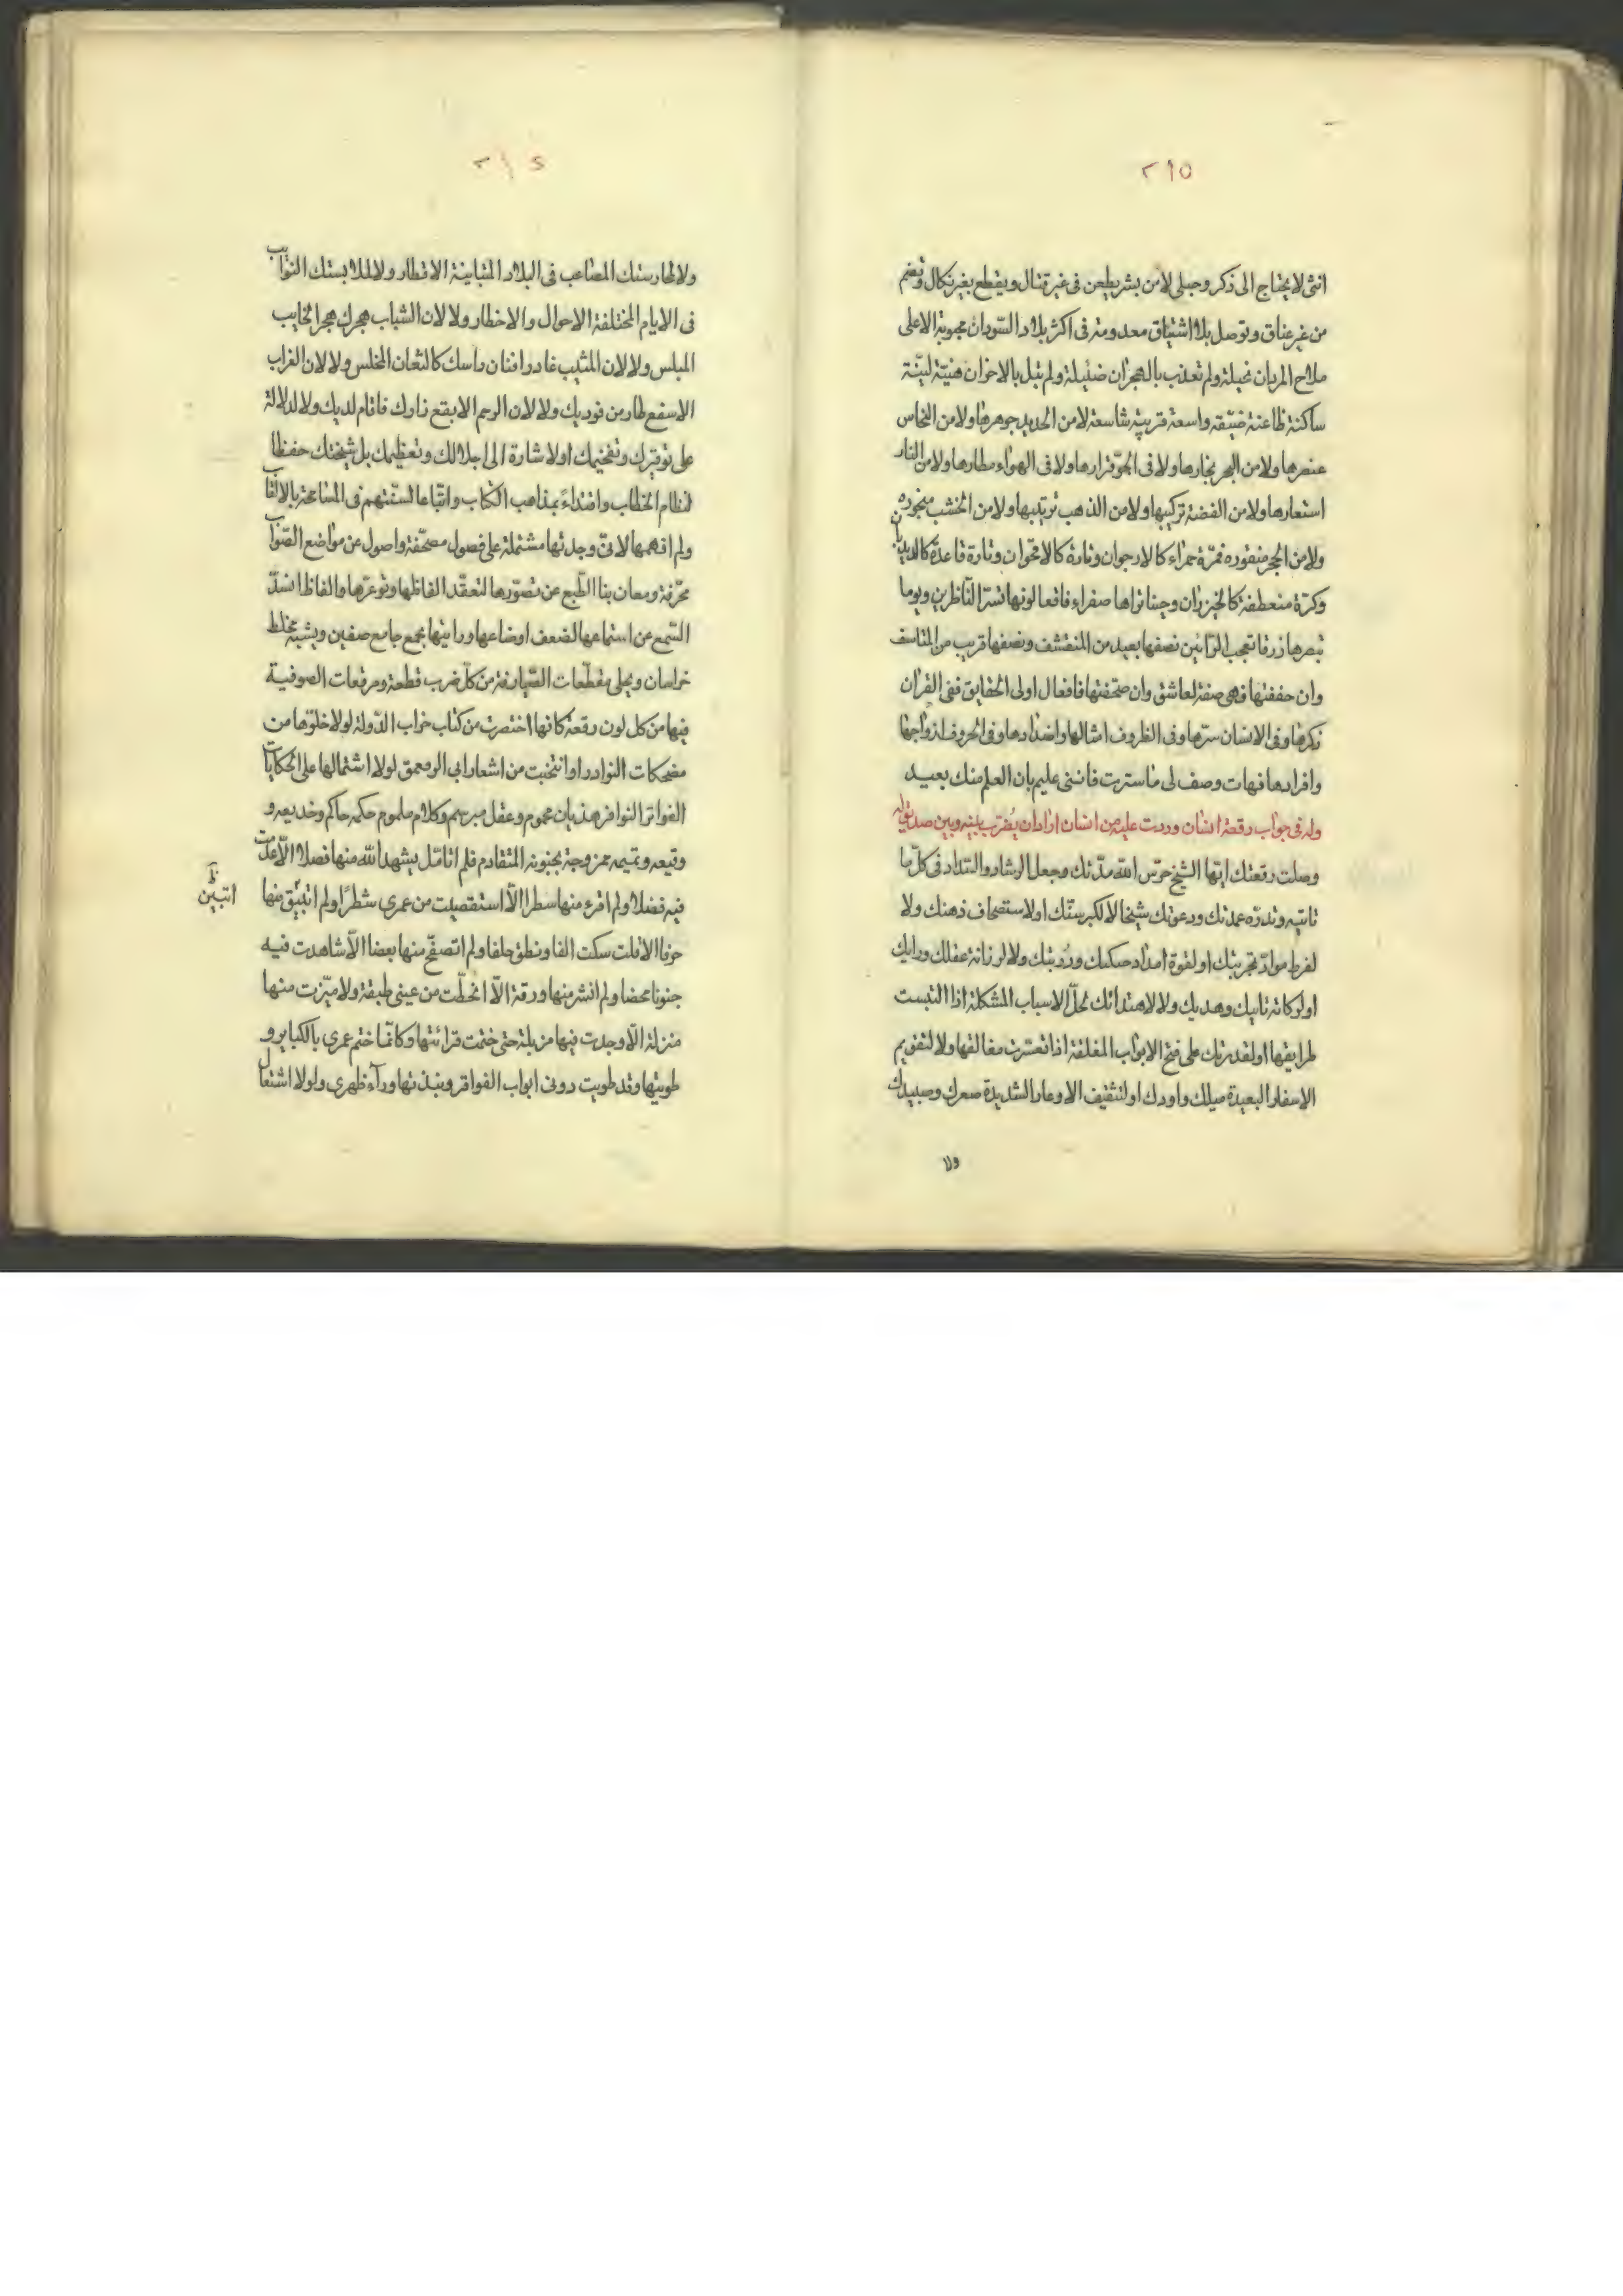 ٢١٥
انثى لا يحتاج الى ذكر وحبلى لا من بشر يطعن فى غير قتال ويقطع بغير نكال وتضم
من غير عناق وتوصل بلا اشتياق معدومة فى اكثر بلاد السّودان محبوبة الاعلى
ملاح المردان نحيلة ولم تعذب بالهجران ضئيلة ولم تبل بالاخزان هنيّة ليّنة
ساكنة ظاعنة ضيّقة واسعة قريبة شاسعة لا من الحديد جوهرها ولا من النحاس
عنصرها ولا من البحر بخارها ولا فى الجوّ قرارها ولا فى الهواء مطارها ولا من النار
استعارها ولا من الفضة تركيبها ولا من الذهب ترتيبها ولا من الخشب منجوره
ولا من الحجر منقوره فمرّة حمراء كالارجوان وتارة كالاقحوان وتارة قاعدة كالديدبان
وكرّة منعطفة كالخيزران وحينا تراها صفراء فاقعا لونها تسرّ النّاظرين ويوما
تبصرها زرقا تعجب الرّائين نصفها بعيد من المتقشف ونصفها قريب من المتاسف
وان حففتها فهى صفة لعاشق وان صحّفتها فافعال اولى الحقايق ففى القران
ذكرها وفى الانسان سرّها وفى الظروف امثالها واضدادها وفى الحروف ازواجها
وافرادها فهات وصف لى ما سترت فاننى عليم بان العلم منك بعيد
وله فى جواب رقعة انسان وردت عليه من انسان اراد ان يضرب بينه وبين صديق له
وصلت رقعتك ايّها الشيخ حرّس الله مدّتك وجعل الرشاد والسّداد فى كلّ ما
تاتيه وتذره عمدتك ودعوتك شيخا لا لكبر سنّك او لاستصحاف ذهنك ولا
لفرط موادّ تجربتك او لقوة امداد حنكتك ودُربتك ولا لرزانة عقلك ورايك
او لركانة تانيك وهديك ولا لاهتدائك لحلّ الاسباب المشكلة اذا التبست
طرايقها او لقدرتك على فتح الابواب المغلقة اذا تعسّرت مغالقها ولا لتقويم
الاسفار البعيدة ميلك واودك او لتثقيف الاوعار الشديدة صعرك وصيدك
ولا
٢١٤
ولا لممارستك المصاعب فى البلاد المتباينة الاقطار ولا لملابستك النوايب
فى الايام المختلفة الاحوال والاخطار ولا لان الشباب هجرك هجر الخايب
المبلس ولا لان المشيب غادر افنان راسك كالثغام المخلس ولا لان الغراب
الاسفع طار من فوديك ولا لان الرحم الابقع زارك فاقام لديك ولا لدلالة
على توقيرك وتفخيمك او لاشارة الى اجلالك وتعظيمك بل شيختك حفظا
لنظام الخطاب واقتداءً بمذاهب الكتاب واتّباعا لسنّتهم فى المسامحة بالالقاب
ولم افهمها لانى وجدتها مشتملة على فصول مصحّفة واصول عن مواضع الصّواب
محرّفة ومعان بنا الطّبع عن تصوّرها لتعقّد الفاظها وتوعّرها والفاظا انسدّ
السّمع عن استماعها لضعف اوضاعها ورايتها بجمع جامع صفين ويشبه مخلط
خراسان ويحلى مقطّعات الصّيارفة من كلّ ضرب قطعة ومرقعات الصوفية
فيها من كل لون رقعة كانها اختصرت من كتاب خراب الدّولة لولا خلوّها من
مضحكات النوادر او انتخبت من اشعار ابى الرقعمق لولا اشتمالها على الحكايات
الفواتر النوافر هذيان محموم وعقل مبرسم وكلام ملموم حكمه حاكم وخديعه و
وقيعه ونميمه ممزوجة بجنونه المتقادم فلم اتامّل يشهد الله منها فصلا الّا عدمت
فيه فضلا ولم اقرء منها سطرا الّا استقصيت من عمرى شطرًا ولم اتبيّق منها
اتبيّن ظ
حرفا الا قلت سكت الفا ونطق خلفا ولم اتصفّح منها بعضا الّا شاهدت فيه
جنونا محضا ولم انشر منها ورقة الّا انحطّت من عينى طبقة ولا ميّزت منها
منزلة الّا وجدت فيها مزبلة حتى ختمت قرائتها وكانّما ختم عمرى بالكبايرو
طويتها وقد طويت دونى ابواب الفواقر ونبذتها ورآء ظهرى ولولا اشتعال